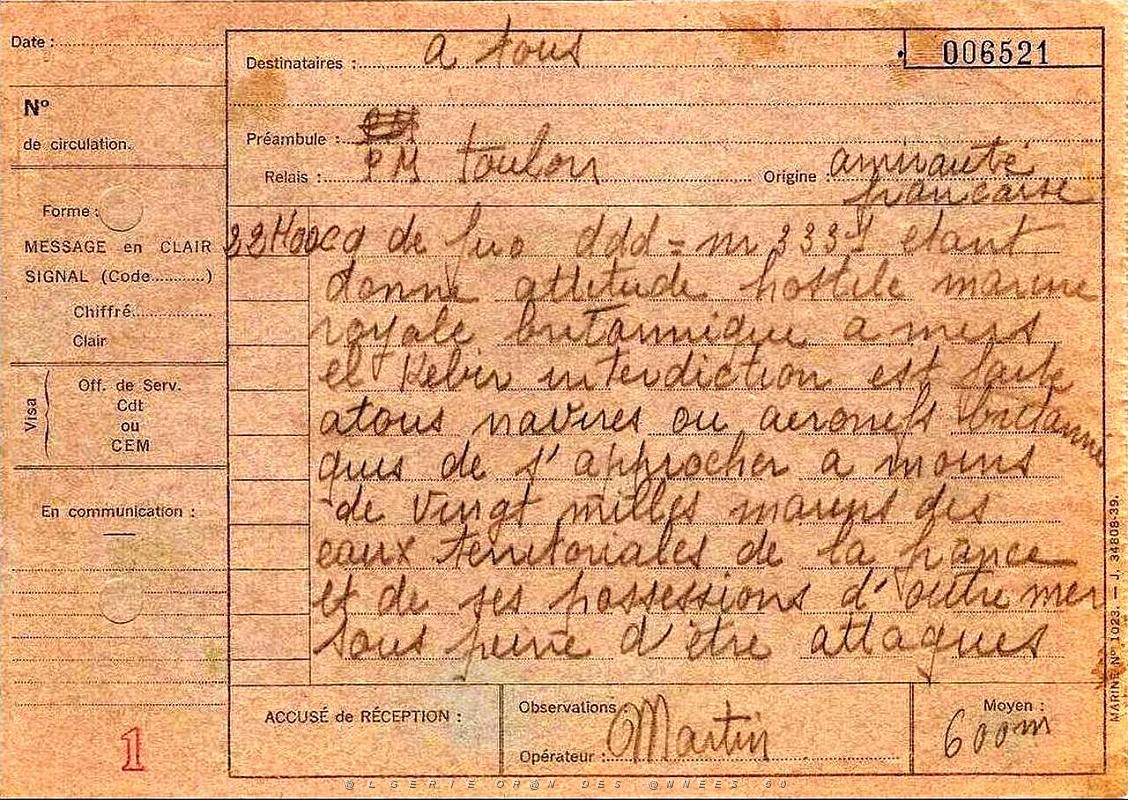 Date :
Destinataires : a tous
006521
Nº
de circulation.
Préambule :
Relais : PM toulon
Origine : amirauté
francaise
Forme :
MESSAGE en CLAIR
SIGNAL (Code..........)
Chiffré
Clair
de fuo ddd = nr 3331 etant
donne attitude hostile marine
royale britannique a mers
el Kebir interdiction est faite
atous navires ou aeronefs britanni
ques de s'approcher a moins
de vingt milles marins des
eaux territoriales de la france
et de ses possessions d'outre mer
sous peine d'être attaques
Visa
Off. de Serv.
Cdt
ou
CEM
En communication :
1
ACCUSÉ de RÉCEPTION :
Observations
Opérateur : Martin
Moyen :
600m
MARINE Nº 1023. — J. 34808-39.
@LGERIE OR@N DES @NNÉES 50